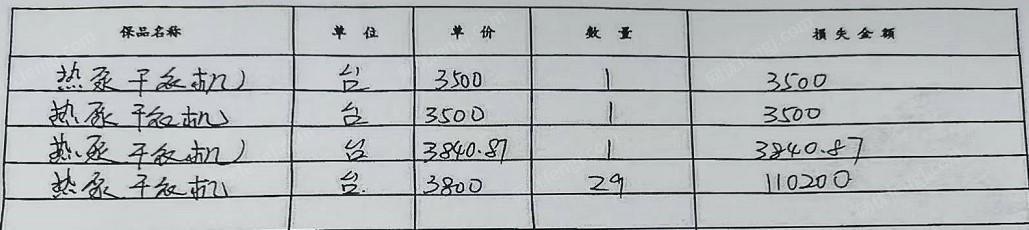 保品名称 单位 单价 数量 损失金额
热泵干衣机 台 3500 1 3500
热泵干衣机 台 3500 1 3500
热泵干衣机 台 3840.87 1 3840.87
热泵干衣机 台 3800 29 110200